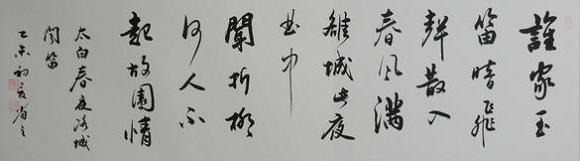 誰家玉
笛暗飛
聲散入
春風滿
雒城此夜
曲中
聞折柳
何人不
起故園情
太白春夜洛城
聞笛
乙未初夏